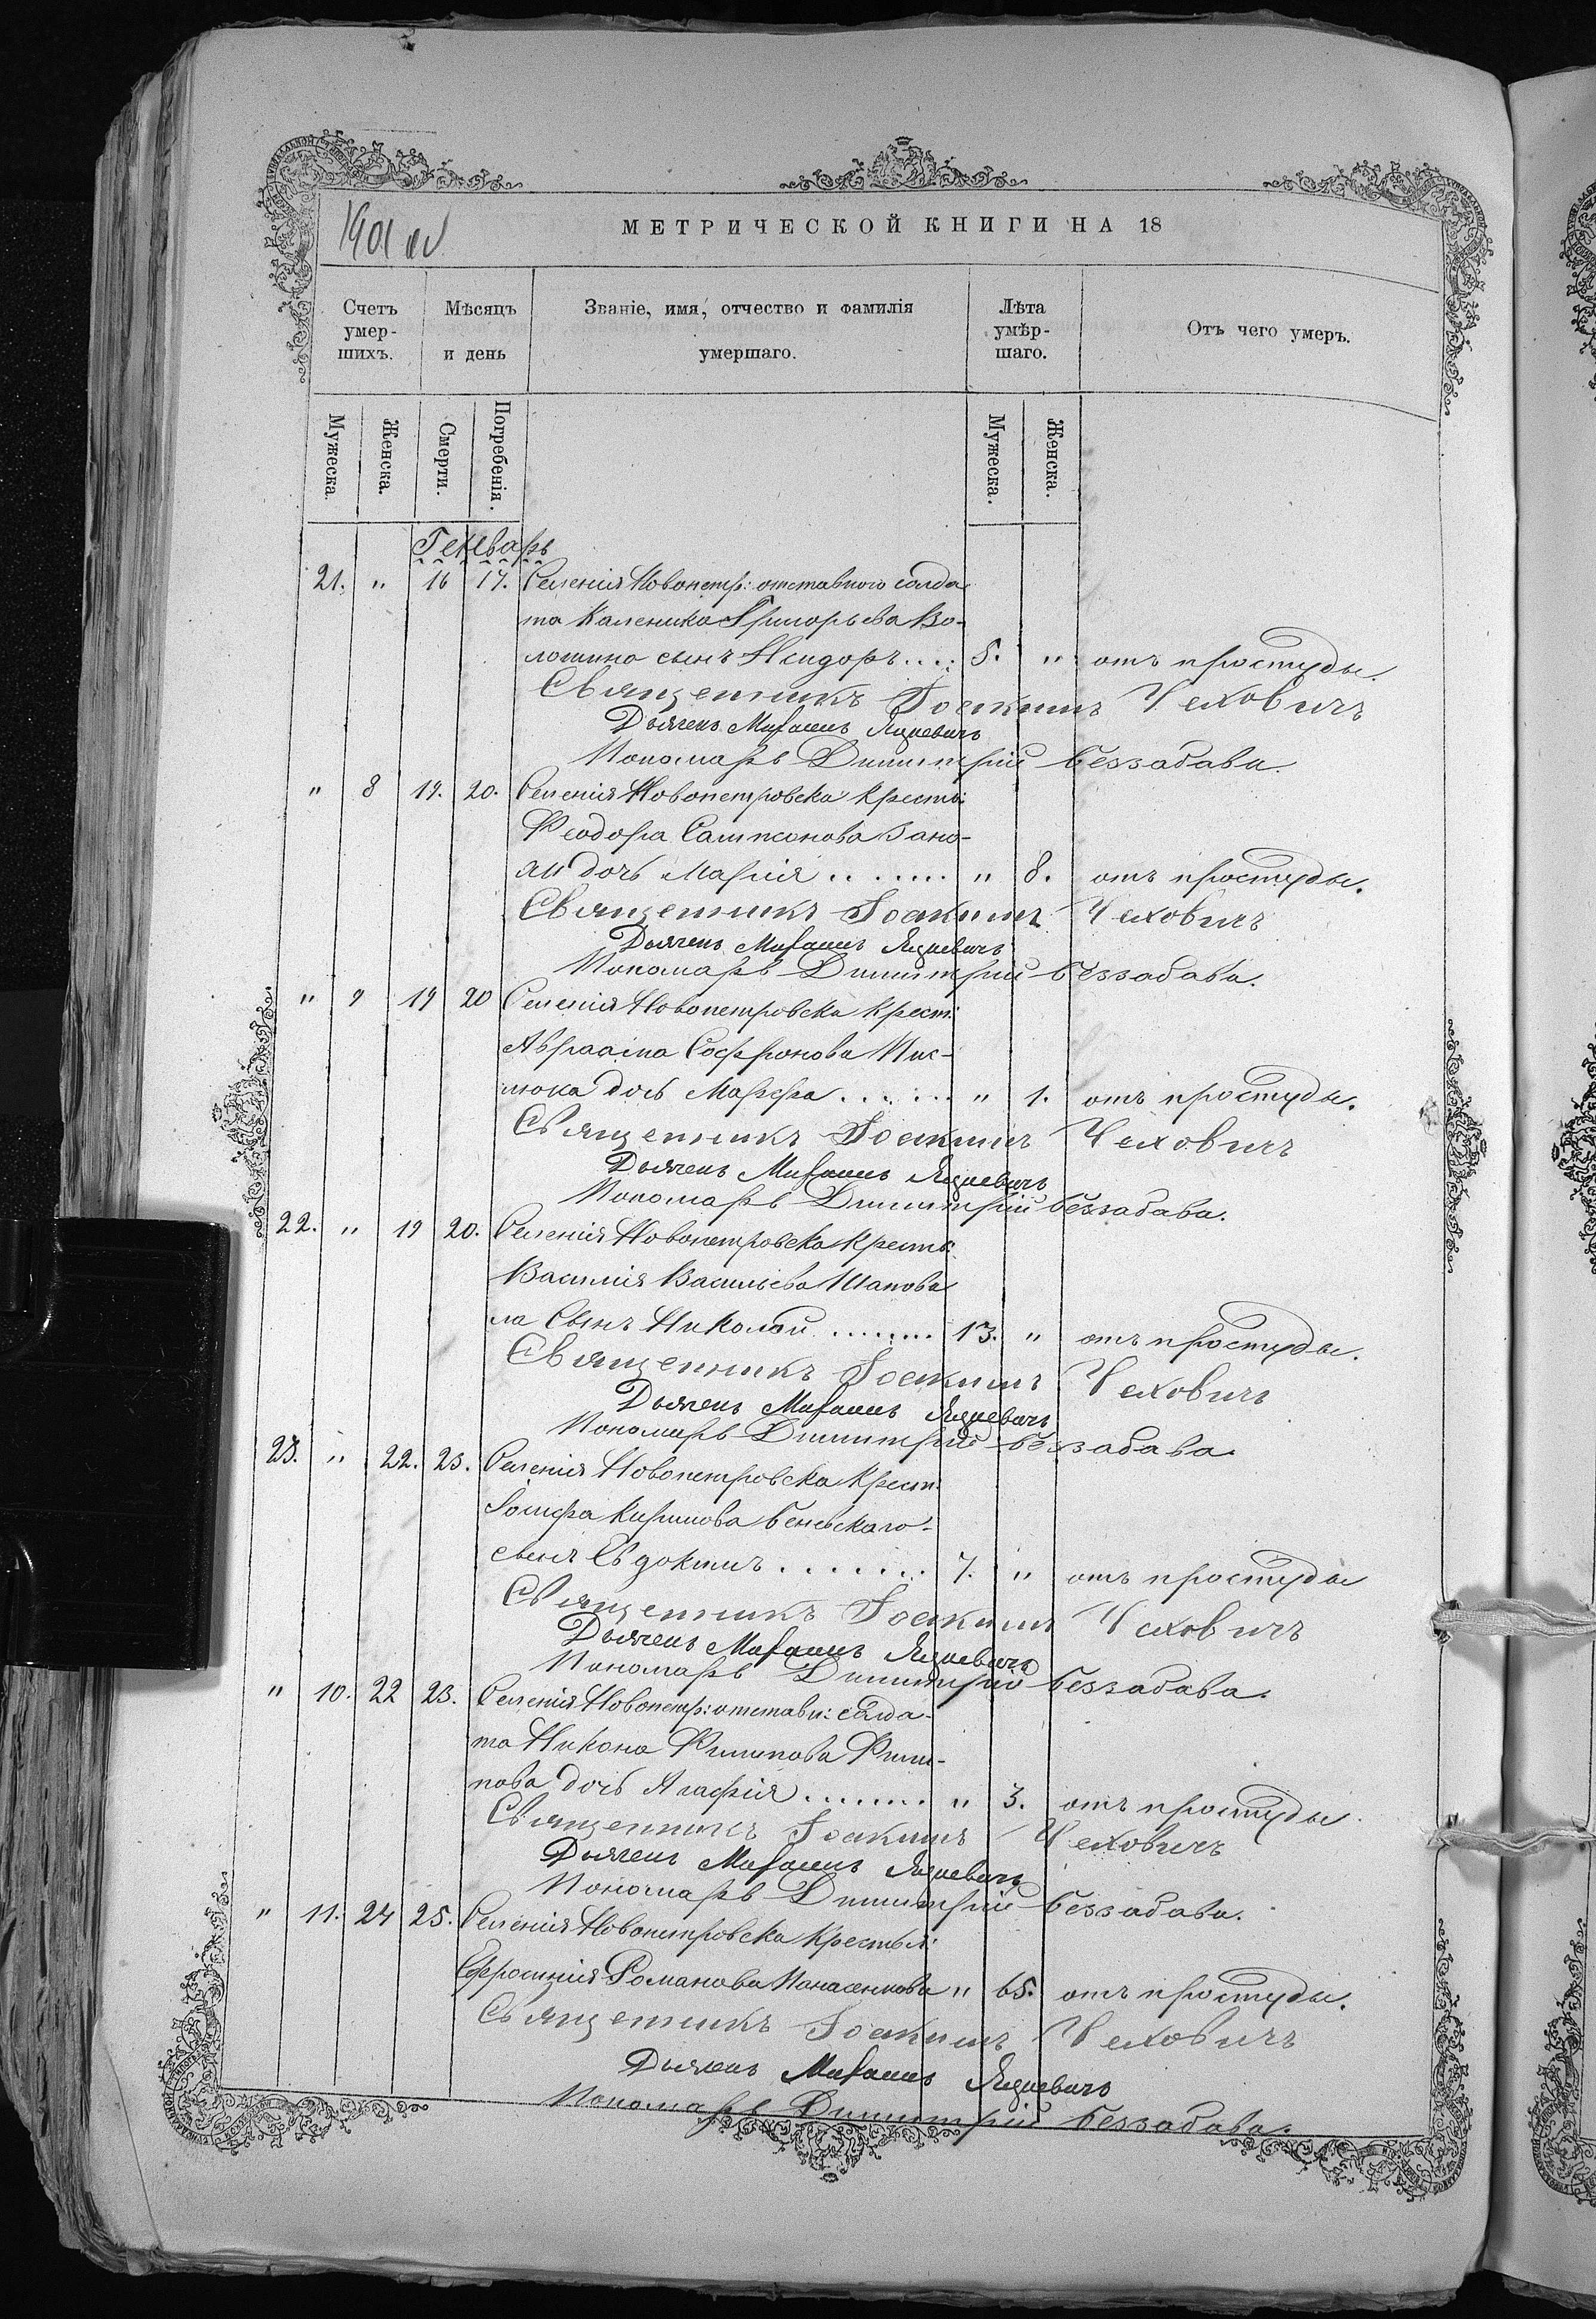 1901 об
МЕТРИЧЕСКОЙ КНИГИ НА 18
Счетъ умер- шихъ.
Мѣсяцъ и день
Званіе, имя, отчество и фамилія умершаго.
Лѣта умѣр- шаго.
Отъ чего умеръ.
Мужеска. Женска. Смерти. Погребенія. Мужеска. Женска.
Генварь
21. " 16 17. Селенія Новопетр: отставного солда
та Каленика Григорьева Во-
лошина сынъ Исидоръ.... 5. " отъ простуды.
Священникъ Іоакимъ Чехович​ъ
Дьячекъ Михаилъ Яцкевичъ
Пономарь Димитрій Беззабава.
" 8 19. 20. Селенія Новопетровска крестья:
Феодора Сампсонова Зано-
ги дочь Марія ....... " 8. отъ простуды.
Священникъ Іоакимъ Чеховичъ
Дьячекъ Михаилъ Яцкевичъ
Пономарь Димитрій Беззабава.
" 9 19 20 Селенія Новопетровска крест:
Авраама Софронова Пис-
люка дочь Марфа ...... " 1. отъ простуды.
Священникъ Іоакимъ Чеховичъ
Дьячекъ Михаилъ Яцкевичъ
Пономарь Димитрій Беззабава.
22. " 19 20. Селенія Новопетровска кресть:
Василія Васильева Шапова
ла сынъ Николай ........ 13. " отъ простуды.
Священникъ Іоакимъ Чеховичъ
Дьячекъ Михаилъ Яцкевичъ
Пономарь Димитрій Беззабава.
23. " 22. 23. Селенія Новопетровска крест:
Іосифа Кирилова Беневскаго-
сынъ Евдокимъ ....... 7. " отъ простуды
Священникъ Іоакимъ Чеховичъ
Дьячекъ Михаилъ Яцкевичъ
Пономарь Димитрій Беззабава.
" 10. 22 23. Селенія Новопетр: отставн: солда-
та Никона Филипова Фили-
пова дочь Агафія ........ " 3. отъ простуды.
Священникъ Іоакимъ Чеховичъ
Дьячекъ Михаилъ Яцкевичъ
Пономарь Димитрій Беззабава.
" 11. 24 25. Селенія Новопетровска крестья:
Ефросинія Романова Панасенкова " 65. отъ простуды.
Священникъ Іоакимъ Чеховичъ
Дьячекъ Михаилъ Яцкевичъ
Пономарь Димитрій Беззабава.